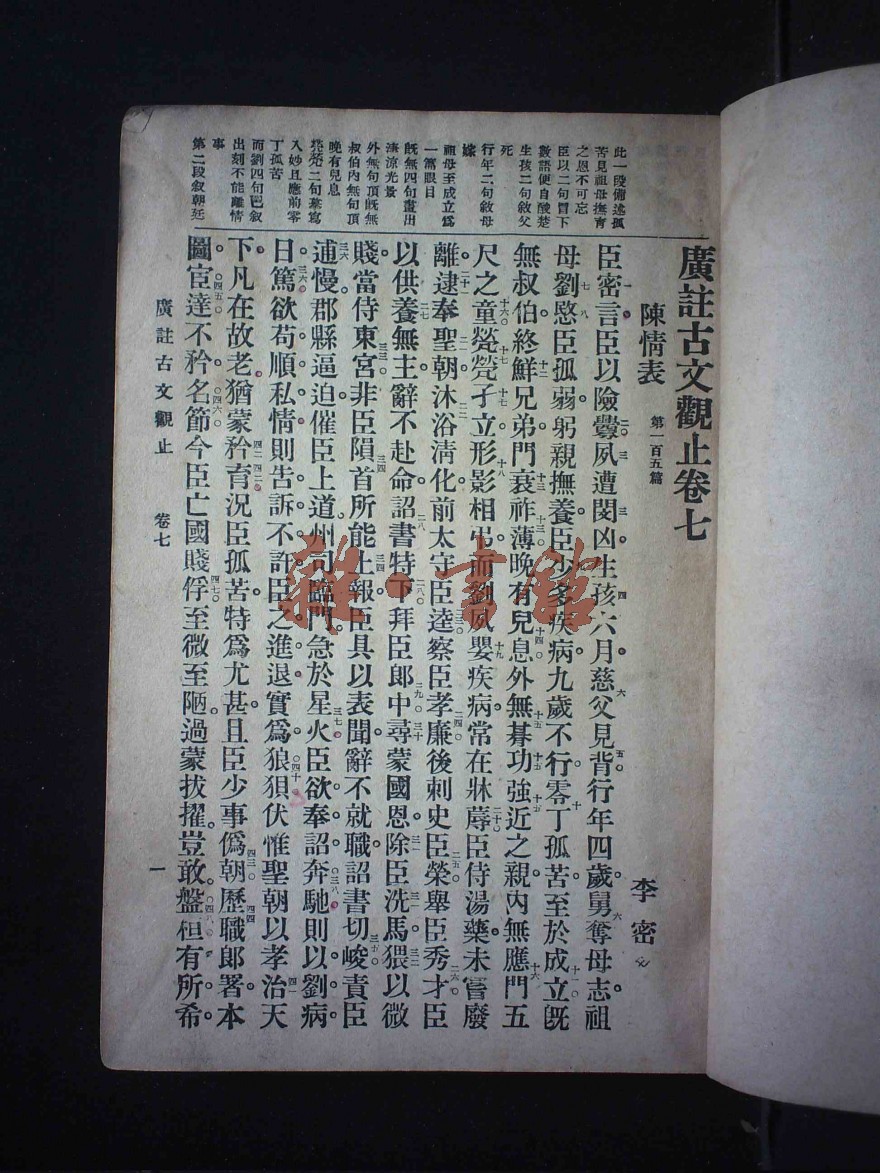 廣註古文觀止卷七
陳情表 第一百五篇 李密
此一段備述孤
苦見祖母撫育
之恩不可忘
臣以二句冒下
數語便自酸楚
生孩二句敘父
死
行年二句敘母
嫁
祖母至成立爲
一篇眼目
既無四句畫出
淒涼光景
外無句頂既無
叔伯內無句頂
晚有兒息
煢煢二句摹寫
入妙且應前零
丁孤苦
而劉四句已敘
出刻不能離情
事
第二段敘朝廷
臣密言臣以險釁夙遭閔凶生孩六月慈父見背行年四歲舅奪母志祖
母劉愍臣孤弱躬親撫養臣少多疾病九歲不行零丁孤苦至於成立既
無叔伯終鮮兄弟門衰祚薄晚有兒息外無朞功強近之親內無應門五
尺之童煢煢孑立形影相弔而劉夙嬰疾病常在牀蓐臣侍湯藥未嘗廢
離逮奉聖朝沐浴清化前太守臣逵察臣孝廉後刺史臣榮舉臣秀才臣
以供養無主辭不赴命詔書特下拜臣郎中尋蒙國恩除臣洗馬猥以微
賤當侍東宮非臣隕首所能上報臣具以表聞辭不就職詔書切峻責臣
逋慢郡縣逼迫催臣上道州司臨門急於星火臣欲奉詔奔馳則以劉病
日篤欲苟順私情則告訴不許臣之進退實爲狼狽伏惟聖朝以孝治天
下凡在故老猶蒙矜育況臣孤苦特爲尤甚且臣少事僞朝歷職郎署本
圖宦達不矜名節今臣亡國賤俘至微至陋過蒙拔擢豈敢盤桓有所希
廣註古文觀止 卷七 一
雜·書館